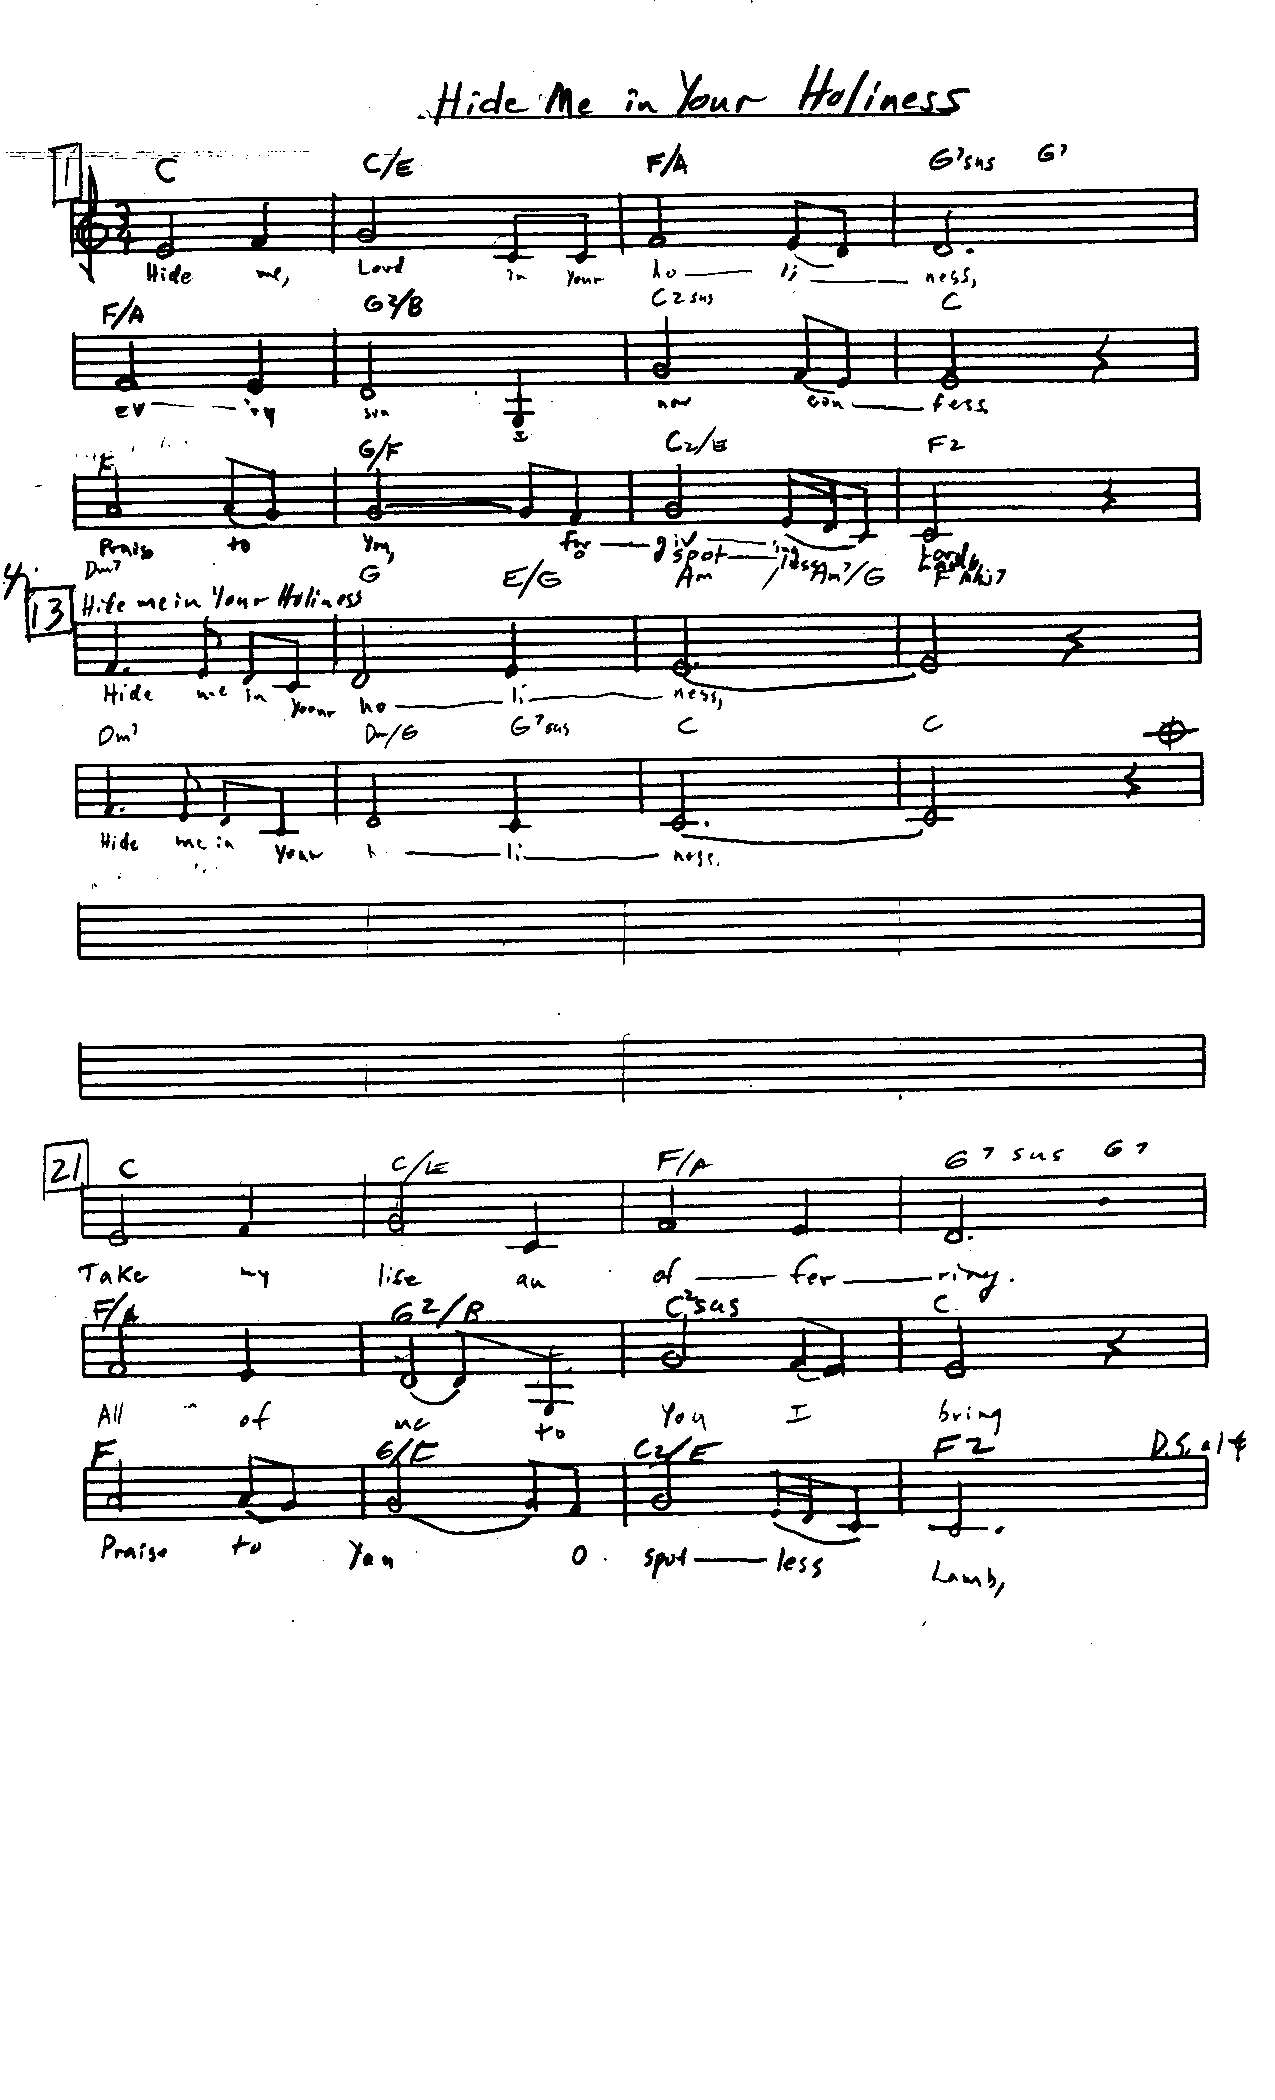 Hide Me in Your Holiness
1 C C/E F/A G7sus G7
3/4
Hide me, Lord in your ho — li — ness,
F/A G2/B C2sus C
ev — 'ry sin I now con — fess
F G/F C2/E F2
Praise to You, for — giv — ing Lord,
O spot — less Lamb,
Dm7 G E/G Am Am7/G F Maj7
13 Hide me in Your Holiness
Hide me in your ho — li — ness,
Dm7 Dm/G G7sus C C
Hide me in your h — li — ness.
21 C C/E F/A G7sus G7
Take my life an of — fer — ring.
F/A G2/B C2sus C
All of me to You I bring
F G/E C2/E F2 D.S. al
Praise to You O spot — less Lamb,